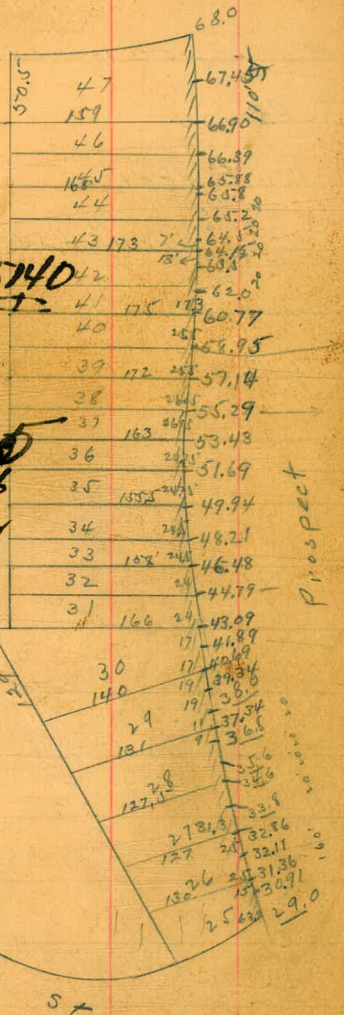 68.0
50.5
47
67.45
110'
159
66.90
46
66.39
45
65.88
168.5
65.8
44
65.2
20
43 173 7'
64.5
20
13'
64.12
20
63.5
5140
42
62.0
20
41 175 173
60.77
40
25.5
58.95
39
172 25.5
57.14
38
26.5
55.29
37
163 26.5
53.43
36
51.69
35
155.5
49.94
34
24.5
48.21
33
158' 24.5
46.48
32
24
44.79
31
166 24
43.09
17
41.89
30
17
40.69
140
19
39.34
19
38.0
29
11
37.34
131
9
36.5
Prospect
35.6
28
34.6
127.5
33.8
27 31.3
32.86
127 25
32.11
160'
26
25
31.36
130
15
30.91
25
29.0
129
St